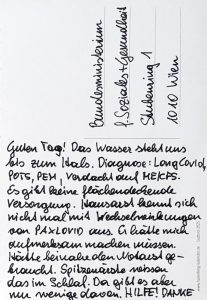 Bundesministerium
f. Soziales + Gesundheit
Stubenring 1
1010 Wien
Guten Tag! Das Wasser steht uns
bis zum Hals. Diagnose: Long Covid,
POTS, PEM, Verdacht auf ME/CFS.
Es gibt keine flächendeckende
Versorgung. Hausarzt kennt sich
nicht mal mit Wechselwirkungen
von PAXLOVID aus. Ich hätte mich
aufmerksam machen müssen.
Hätte beinahe den Notarzt ge-
braucht. Spitzenärzte wissen
das im Schlaf. Da gibt es aber
nur wenige davon. HILFE! DANKE